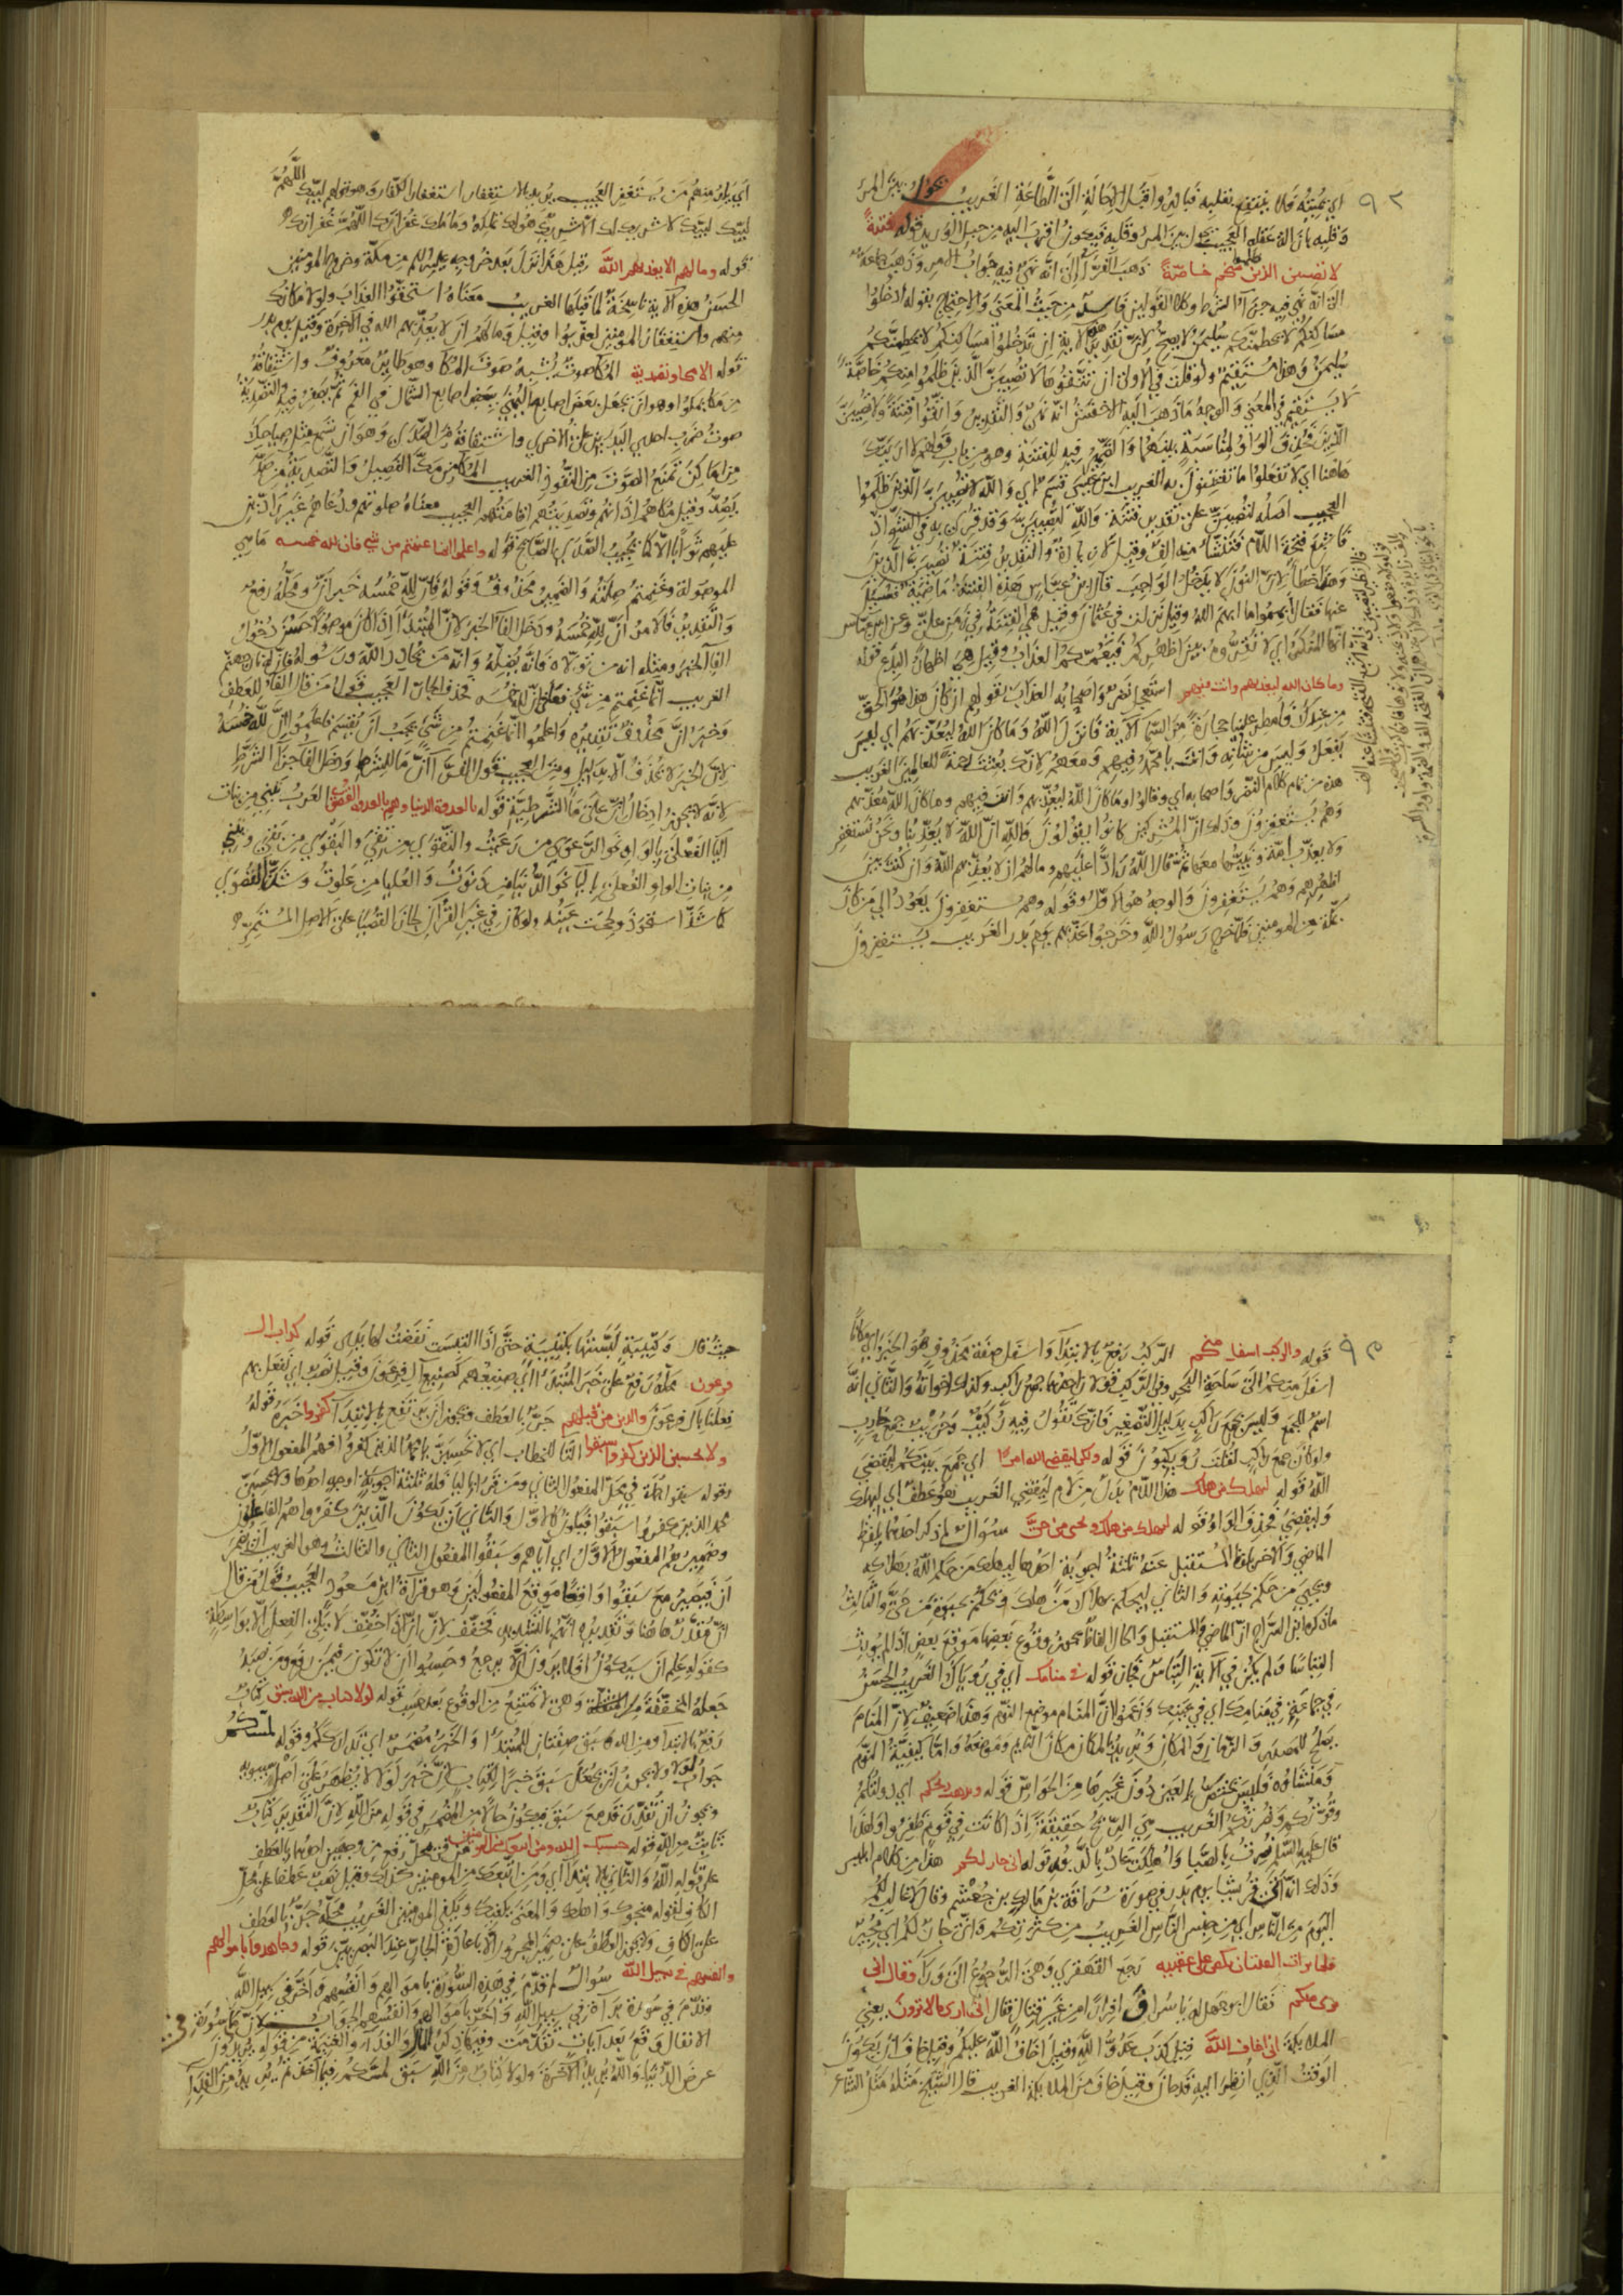 اي يميته فلا ينتفع بقلبه فبادروا قبل الحالة الى الطاعة الغريب يحول بين المرء
وقلبه بازالة عقله العجيب يحول بين المرء وقلبه فيكون اقرب اليه من حبل الوريد قوله فتنة
لا تصيبن الذين ظلموا منكم خاصة ذهب الفراء الى انه نهي فيه جواب الامر وذهب جماعة
الى انه نهي فيه جزاء الشرط وكلا القولين فاسد من حيث المعنى والاحتجاج بقوله ادخلوا
مساكنكم لا يحطمنكم سليمن لا يصح لان تقدير الآية ان تدخلوا مساكنكم لا يحطمنكم
سليمن وهذا مستقيم ولو قلت في الاولى ان تتقوها لا تصيبن الذين ظلموا منكم خاصة
لا يستقيم في المعنى والوجه ما ذهب اليه الاخفش انه نهي والتقدير واتقوا فتنة ولا تصيبن
الذين فحذف الواو لمناسبة بينهما والضمير فيه للفتنة وهو من باب قولهم لا ارينك
هاهنا اي لا تفعلوا ما تفتنون به الغريب ابن عيسى قسم اي والله لا تصيبن الذين ظلموا
العجيب اصله لتصيبن على تقدير فتنة والله لتصيبن وقد قرئ به في الشواذ
فاشبع فتحة اللام فتنشأ منه الف وقيل لا زيادة والتقدير فتنة تصيبن الذين
وهذا خطأ لان النون لا يدخل الواجب قال ابن عباس هذه الفتنة
عنها فقال ابهموا ما ابهم الله وقيل نزلت في عثمان وقيل هي الفتنة في زمن علي وعن ابن عباس
انها المنكر اي لا تقروه بين اظهركم فيعمكم العذاب وقيل هي اظهار البدع قوله
وما كان الله ليعذبهم وانت فيهم استعجل نضر واصحابه العذاب بقولهم ان كان هذا هو الحق
من عندك فامطر علينا حجارة من السماء الآية فانزل الله وما كان الله ليعذبهم اي ليس
يفعل وليس من شأنه وانت يا محمد فيهم ومعهم لانك بعثت رحمة للعالمين الغريب
هذه من تمام كلام النضر واصحابه اي وقالوا وما كان الله ليعذبهم وانت فيهم وما كان الله معذبهم
وهم يستغفرون وذلك ان المشركين كانوا يقولون والله ان الله لا يعذبنا ونحن نستغفر
ولا يعذب امة ونبيها معها ثم قال الله ردا عليهم وما لهم ان لا يعذبهم الله وان كنت بين
اظهرهم وهم يستغفرون والوجه هو الاول وقوله وهم يستغفرون يعود الى من كان
بمكة من المومنين فلما خرج رسول الله وخرجوا عذبهم يوم بدر الغريب يستغفرون
اي يراد منهم من يستغفر العجيب يريد بالاستغفار استغفار الكفار وهو قولهم لبيك اللهم
لبيك لبيك لا شريك لك الا شريك هو لك تملكه وما ملك غفرانك اللهم غفرانك
قوله وما لهم الا يعذبهم الله وقيل هذا نزل بعد خروجه عليه السلام من مكة وخروج المومنين
الحسن هذه الآية ناسخة لما قبلها الغريب معناه استحقوا العذاب ولولا مكانك
منهم واستغفار المومنين لعذبوا وقيل وما لهم ان لا يعذبهم الله في الآخرة وقيل يوم بدر
قوله الا مكاء وتصدية المكاء صوت يشبه صوت المكاء وهو طائر معروف واشتقاقه
من مكا يمكوا وهو ان يجعل بعض اصابع اليمنى ببعض اصابع الشمال في الفم ثم يصفر فيه والتصدية
صوت ضرب احدى اليدين على الاخرى واشتقاقه من الصدى وهو ان تسمع مثل صياحك
من اماكن تمنع الصوت من النفوذ الغريب المكاء من مكاء الفصيل والتصدية من صد
يصد وقيل مكاهم اذانهم وتصديتهم اقامتهم العجيب معناه صلوتهم ودعاهم غير رادين
عليهم ثوابا الا كما يجيب الصدى الصائح قوله واعلموا انما غنمتم من شي فان لله خمسه ما هي
الموصولة وغنمتم صلته والضمير محذوف وقوله فان لله خمسه خبر ان ومحله رفع
والتقدير فالامر ان لله خمسه ودخل الفاء الخبر لان المبتدا اذا كان موصولا حسن دخول
الفاء الخبر ومثله انه من تولاه فانه يضله وانه من يحادد الله ورسوله فان له نار جهنم
الغريب انما غنمتم من شي فعلى ان لله خمسه فحذف الجار العجيب قول من قال الفاء للعطف
وخبر ان محذوف تقديره واعلموا انما غنمتم من شي يجب ان يقسم فاعلموا ان لله خمسه
لان الخبر لا يحذف الا بدليل ومن العجيب قول الفراء ان ما للشرط ودخل الفاء جزاء الشرط
لانه لا يجوز ادخال ان على ما الشرطية قوله بالعدوة الدنيا وهم بالعدوة القصوى العرب تبني من بنات
الياء الفعلى بالواو نحو الدعوى من دعيت والتقوى من تقي والبقوى من بقي وتبني
من بنات الواو الفعلى بالياء نحو الدنيا من دنوت والعليا من علوت وشذ القصوى
كما شذ استحوذ وصحت عينه ولو كان في غير القرآن لجاز القصيا على الاصل المستمر
قوله والركب اسفل منكم الركب رفع بالابتداء واسفل صفة محذوف هو الخبر اي مكانا
اسفل منكم الى ساحل البحر وفي الركب قولان احدهما جمع راكب وكذلك اخواته والثاني انه
اسم للجمع وليس بجمع راكب بدليل التصغير فانك تقول فيه ركيب وحريب جمع حارب
ولو كان جمع راكب لقلت رويكبون قوله ولكن ليقضي الله امرا اي جمع بينكم ليقضي
الله قوله ليهلك من هلك هذا اللام بدل من لام ليقضي الغريب هو عطف اي ليهلك
وليقضي فحذف الواو قوله ليهلك من هلك ويحيى من حي سوال لم ذكر احدهما بلفظ
الماضي والآخر بلفظ المستقبل عنه ثلثة اجوبة احدها ليهلك من حكم الله بهلاكه
ويحيى من حكم بحيوته والثاني ليحكم بهلاك من هلك ويحكم بحيوة من حي والثالث
ما ذكره ابن السراج ان الماضي والمستقبل والحال الفاظ يجوز وقوع بعضها موقع بعض اذا لم يورث
التباسا ولم يكن في الآية التباس فجاز قوله في منامك اي في رؤياك الغريب الحسن
في جماعة في منامك اي في عينيك وزعموا ان المنام موضع النوم وهذا ضعيف لان المنام
يصلح للمصدر والزمان والمكان ويريد بالمكان مكان النائم وموضعه واما كيفية النوم
ومنشاؤه فليس يختص بالعين دون غيرها من الحواس قوله وتذهب ريحكم اي دولتكم
وقوتكم ونصرتكم الغريب هي الريح حقيقة اذا كانت في قوم ظفروا ولهذا
قال عليه السلام نصرت بالصبا واهلكت عاد بالدبور قوله اني جار لكم هذا من كلام ابليس
وذلك انه اتى قريشا يوم بدر في صورة سراقة بن مالك بن جعشم وقال لا غالب لكم
اليوم من الناس اي من جنس الناس الغريب من كثرتكم واني جار لكم اي مجير
فلما تراءت الفئتان نكص على عقبيه رجع القهقرى وهي الرجوع الى وراء فقال اني
بري منكم فقال ابو جهل له يا سراق افرارا من غير قتال فقال اني ارى ما لا ترون يعني
الملائكة اني اخاف الله قيل كذب عدو الله وقيل اخاف الله عليكم وقيل خاف ان يكون
الوقت الذي انظر اليه قد حان وقيل خاف من الملائكة الغريب قال الشيخ مثله مثل الشاعر
حيث قال وكتيبة لبستها بكتيبة حتى اذا التبست نفضت لها يدي قوله كداب ال
فرعون محله رفع على خبر المبتدا اي صنيعهم كصنيع آل فرعون وقيل نصب اي نفعل بهم
فعلنا بآل فرعون والذين من قبلهم جر بالعطف ويجوز ان يرتفع بالابتداء كفروا خبره قوله
ولا تحسبن الذين كفروا سبقوا التاء للخطاب اي لا تحسبن يا محمد الذين كفروا فهم المفعول الاول
وقوله سبقوا جملة في محل المفعول الثاني ومن قرا بالياء فله ثلثة اوجه احدها ولا يحسبن
محمد الذين كفروا سبقوا فيكون كالاول والثاني ان يكون الذين كفروا هم الفاعلون
وضميرهم المفعول الاول اي اياهم وسبقوا المفعول الثاني والثالث وهو الغريب ان يضمر
ان فيصير مع سبقوا واقعا موقع المفعولين وهو قراءة ابن مسعود العجيب قول من قال
ان مقدر هاهنا وتقديره انهم بالتشديد فخفف لان ان اذا خفف لا يلي الفعل الا بواسطة
كقوله علم ان سيكون افلا يرون الا يرجع وحسبوا ان لا تكون فيمن رفع ومن نصب
جعله المخففة من المثقلة وهي لا تمتنع من الوقوع بعد حسب قوله لولا كتاب من الله سبق كتاب
رفع بالابتداء ومن الله كما سبق صفتان للمبتدا والخبر مضمر اي تدارككم وقوله لمسكم
جواب لولا ولا يجوز ان تجعل سبق خبرا لكتاب لان خبر لولا لا يظهر على اصل سيبويه
ويجوز ان تقدر قد مع سبق فيكون حالا من المضمر في قوله من الله لان التقدير كتاب
ثابت من الله قوله حسبك الله ومن اتبعك من المومنين محل من رفع من وجهين احدهما بالعطف
على قوله الله والثاني بالابتداء اي ومن اتبعك من المومنين كذلك وقيل نصب عطفا على محل
الكاف لقوله منجوك واهلك والمعنى يكفيك ويكفي المومنين الغريب محله جر بالعطف
على الكاف ولا يجوز العطف على ضمير المجرور الا باعادة الجار عند البصريين قوله وجاهدوا باموالهم
وانفسهم في سبيل الله سوال لم قدم في هذه السورة باموالهم وانفسهم واخر في سبيل الله
وقدم في سورة براءة في سبيل الله واخر باموالهم وانفسهم الجواب لان ما في سورة
الانفال وقع بعد آيات تقدمت وفيها ذكر المال والفداء والغنيمة من قوله تريدون
عرض الدنيا والله يريد الآخرة ولولا كتاب من الله سبق لمسكم فيما اخذتم يريد من الفداء